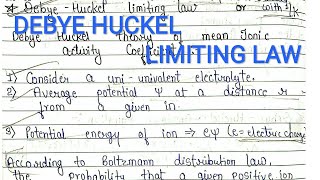 * Debye - Huckel limiting law or with I/X
DEBYE HUCKEL
Debye Huckel theory of mean Ionic
activity Coefficient
LIMITING LAW
1) Consider a uni-univalent electrolyte.
2) Average potential Ψ at a distance r
from a given ion.
3) Potential energy of ion ⇒ eΨ (e = electric charge
According to Boltzmann distribution law,
the probability that a given positive ion